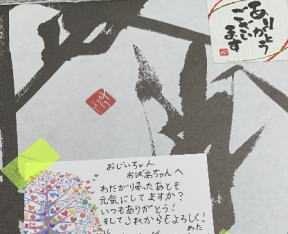 ありがとう
ございます
おじいちゃん
おばあちゃんへ
わたがり変ったあとも
元気にしてますか?
いつもありがとう!
そしてこれからもよろしく!